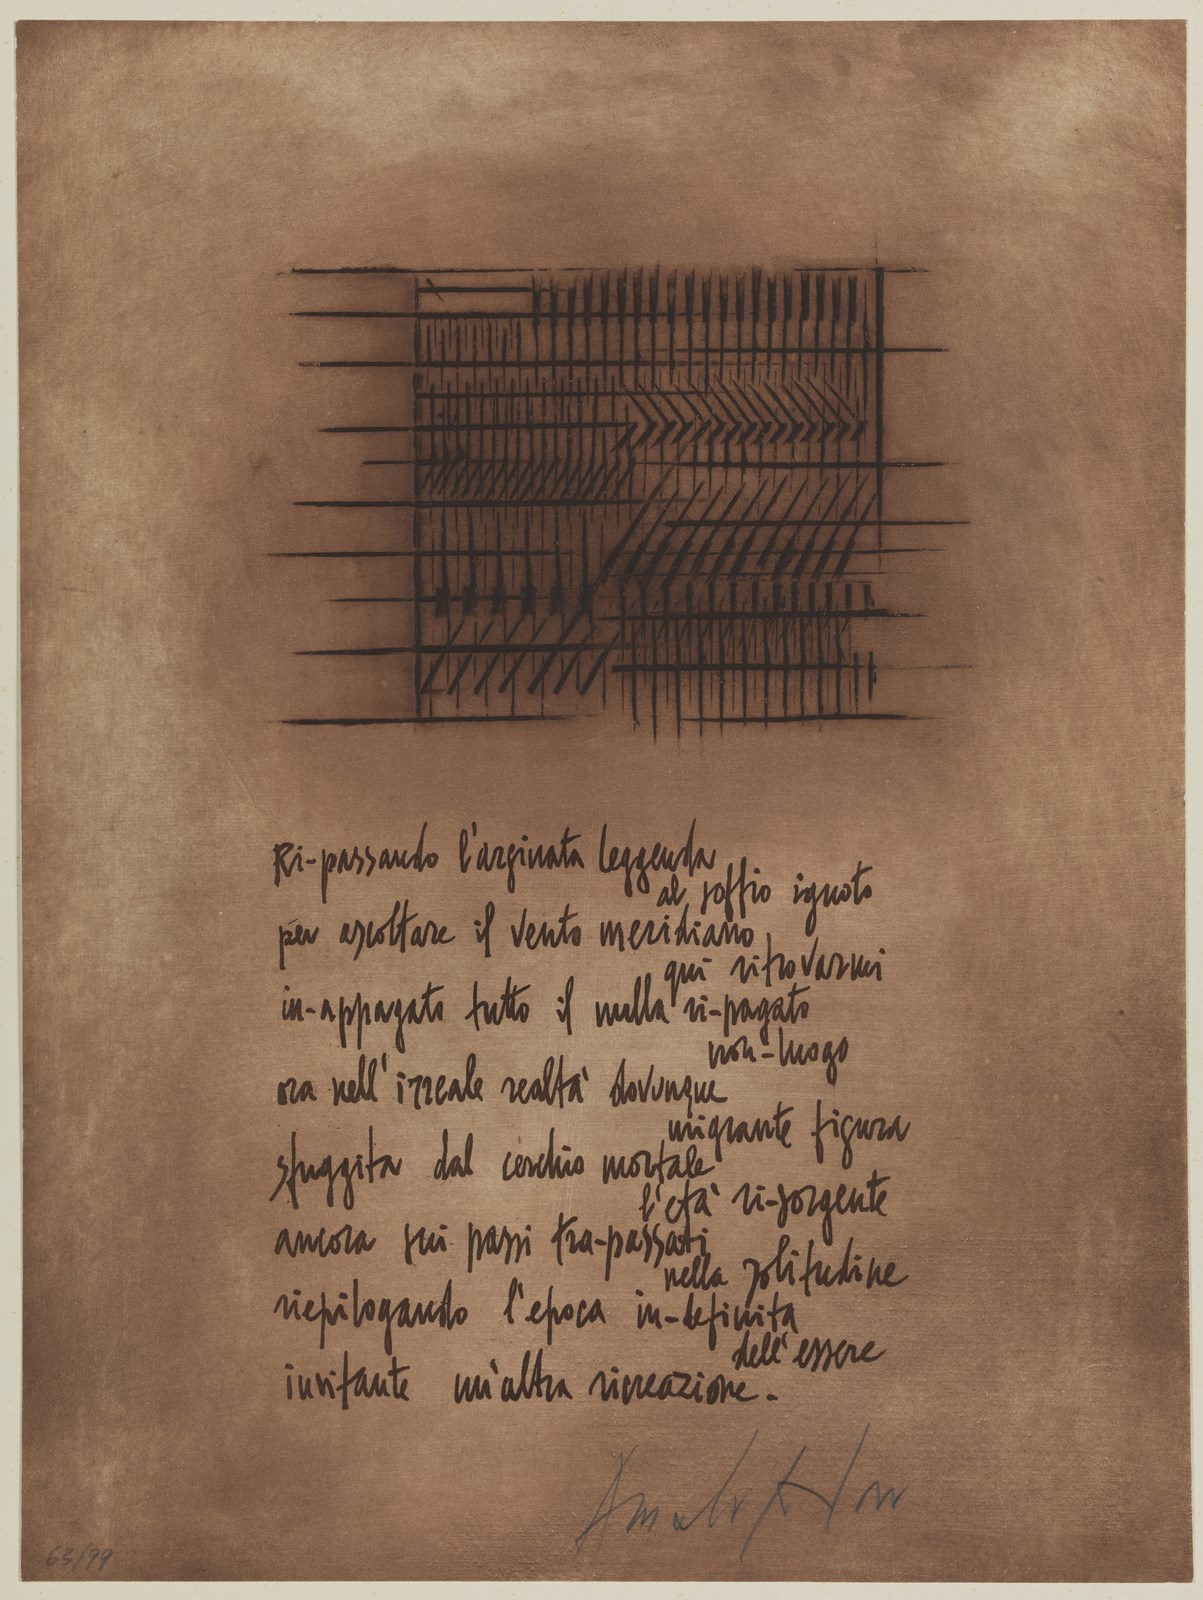 Ri-passando l'arginata leggenda
al soffio ignoto
per ascoltare il vento meridiano
qui ritrovarmi
in-appagato tutto il nulla ri-pagato
non-luogo
ora nell'irreale realtà dovunque
migrante figura
sfuggita dal cerchio mortale
l'età ri-sorgente
ancora sui passi tra-passati
nella solitudine
riepilogando l'epoca in-definita
dell'essere
invitante un'altra ricreazione.
63/99